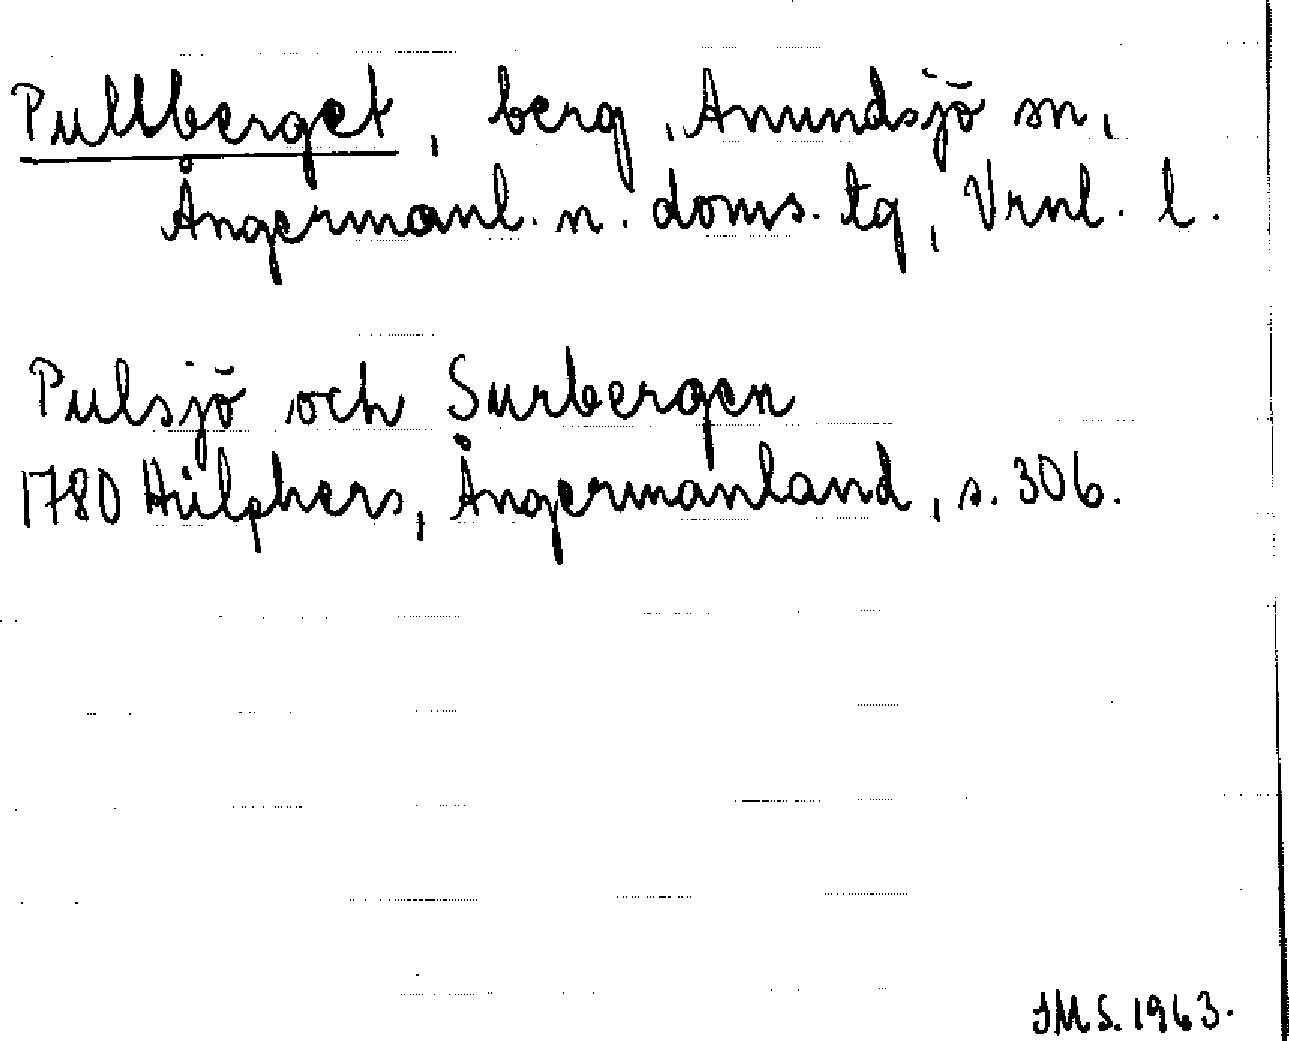 Pullberget, berg, Anundsjö sn,
Ångermanl. n. doms. tg, Vrnl. l.
Pulsjö och Surbergen
1780 Hülphers, Ångermanland, s. 306.
JMS. 1963.